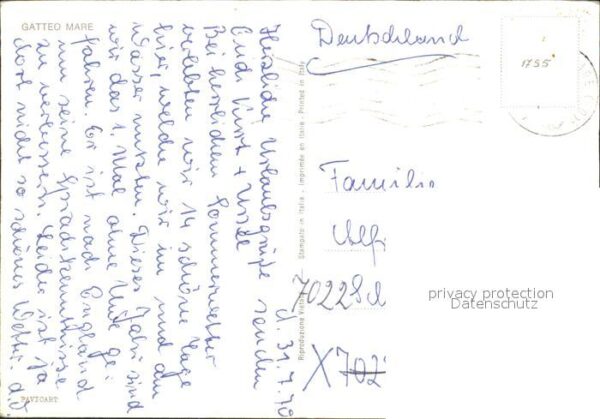 GATTEO MARE
d. 31.7.78
Herzliche Urlaubsgrüße senden
Euch Kurt +
Bei herrlichem Sommerwetter
verlebten wir 14 schöne Tage
hier, welche wir im und am
Wasser nutzten. Dieses Jahr sind
wir das 1. Mal ohne Uwe ge-
fahren. Er ist nach England
um seine Sprachkenntnisse
zu verbessern. Leider ist ja
dort nicht so schönes Wetter.
PAVICART
Riproduzione Vietata
Stampato in Italia - Imprimée en Italie - Printed in Italy
Deutschland
1755
Familie
Alfr
7022
X702
privacy protection
Datenschutz